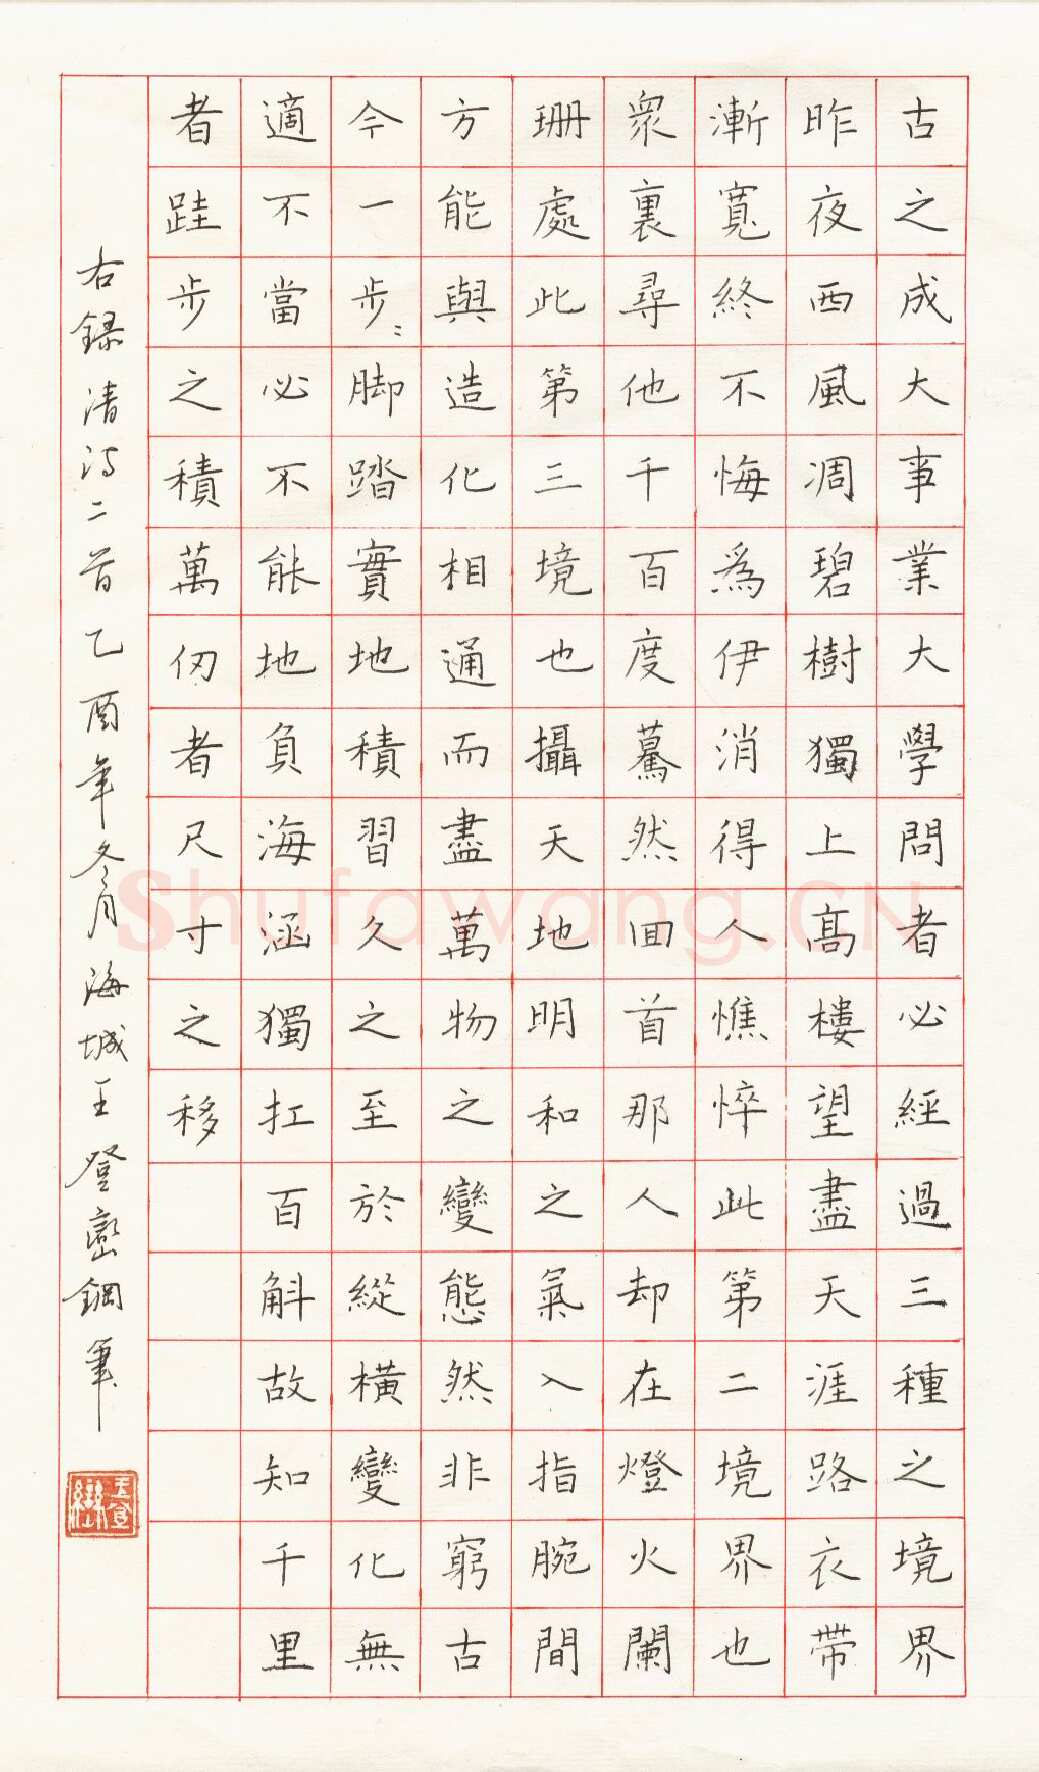 古之成大事業大學問者必經過三種之境界
昨夜西風凋碧樹獨上高樓望盡天涯路衣帶
漸寬終不悔為伊消得人憔悴此第二境界也
眾裏尋他千百度驀然回首那人却在燈火闌
珊處此第三境也攝天地明和之氣入指腕間
方能與造化相通而盡萬物之變態然非窮古
今一步〻脚踏實地積習久之至於縱橫變化無
適不當必不能地負海涵獨扛百斛故知千里
者跬步之積萬仞者尺寸之移
右錄清詩二首乙酉年冬月海城王登巒鋼筆
王登巒
Shufawang.CN